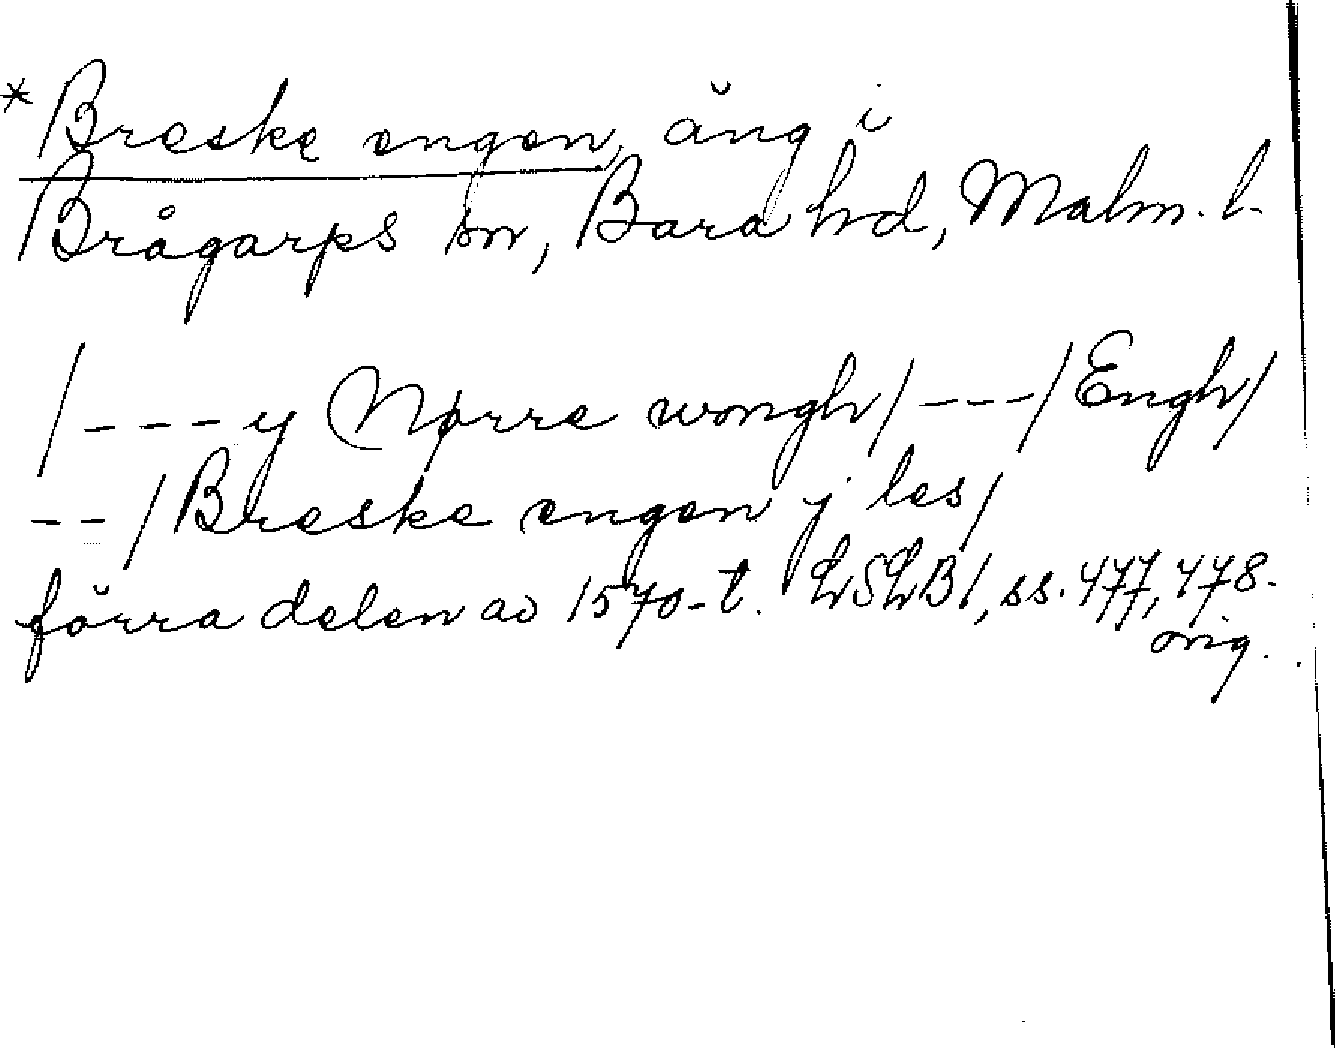 * Breske engen, äng i
Brågarps sn, Bara hd, Malm. l.
/---y Nørre wongh/---/Engh/
--/Breske engen j les/
förra delen av 1570-t. LSLB1, ss. 477, 478.
orig.